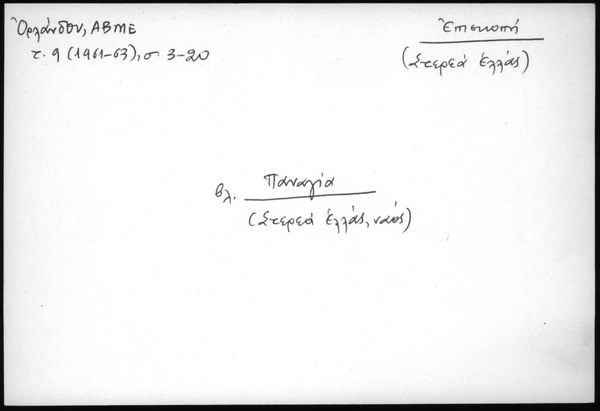 Ὀρλάνδου, ΑΒΜΕ
τ. 9 (1961-63), σ 3-20
Ἐπισκοπή
(Στερεά Ἑλλάς)
βλ. Παναγία
(Στερεά Ἑλλάς, ναός)